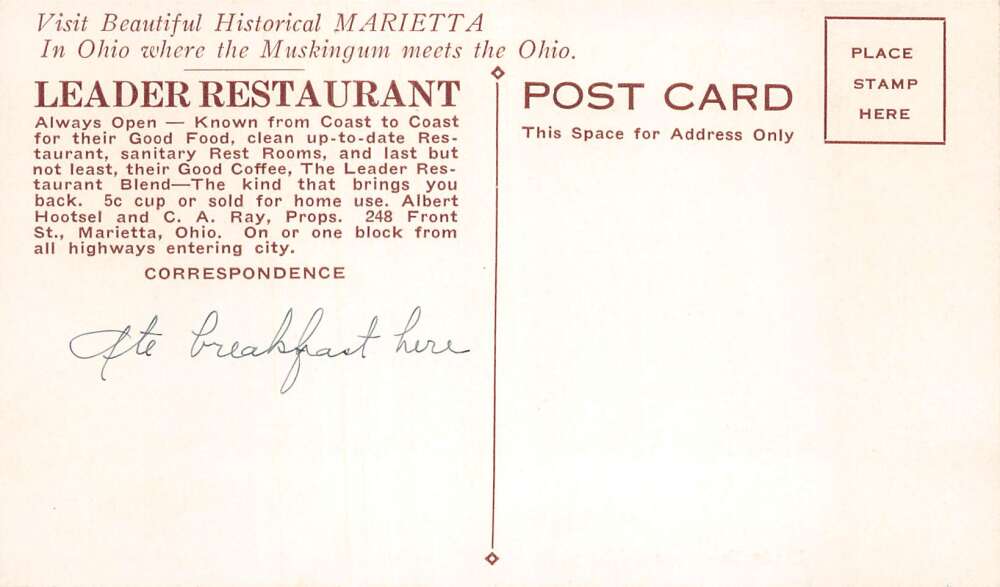 Visit Beautiful Historical MARIETTA
In Ohio where the Muskingum meets the Ohio.
LEADER RESTAURANT
Always Open — Known from Coast to Coast
for their Good Food, clean up-to-date Res-
taurant, sanitary Rest Rooms, and last but
not least, their Good Coffee, The Leader Res-
taurant Blend—The kind that brings you
back. 5c cup or sold for home use. Albert
Hootsel and C. A. Ray, Props. 248 Front
St., Marietta, Ohio. On or one block from
all highways entering city.
CORRESPONDENCE
Ate breakfast here
POST CARD
This Space for Address Only
PLACE
STAMP
HERE